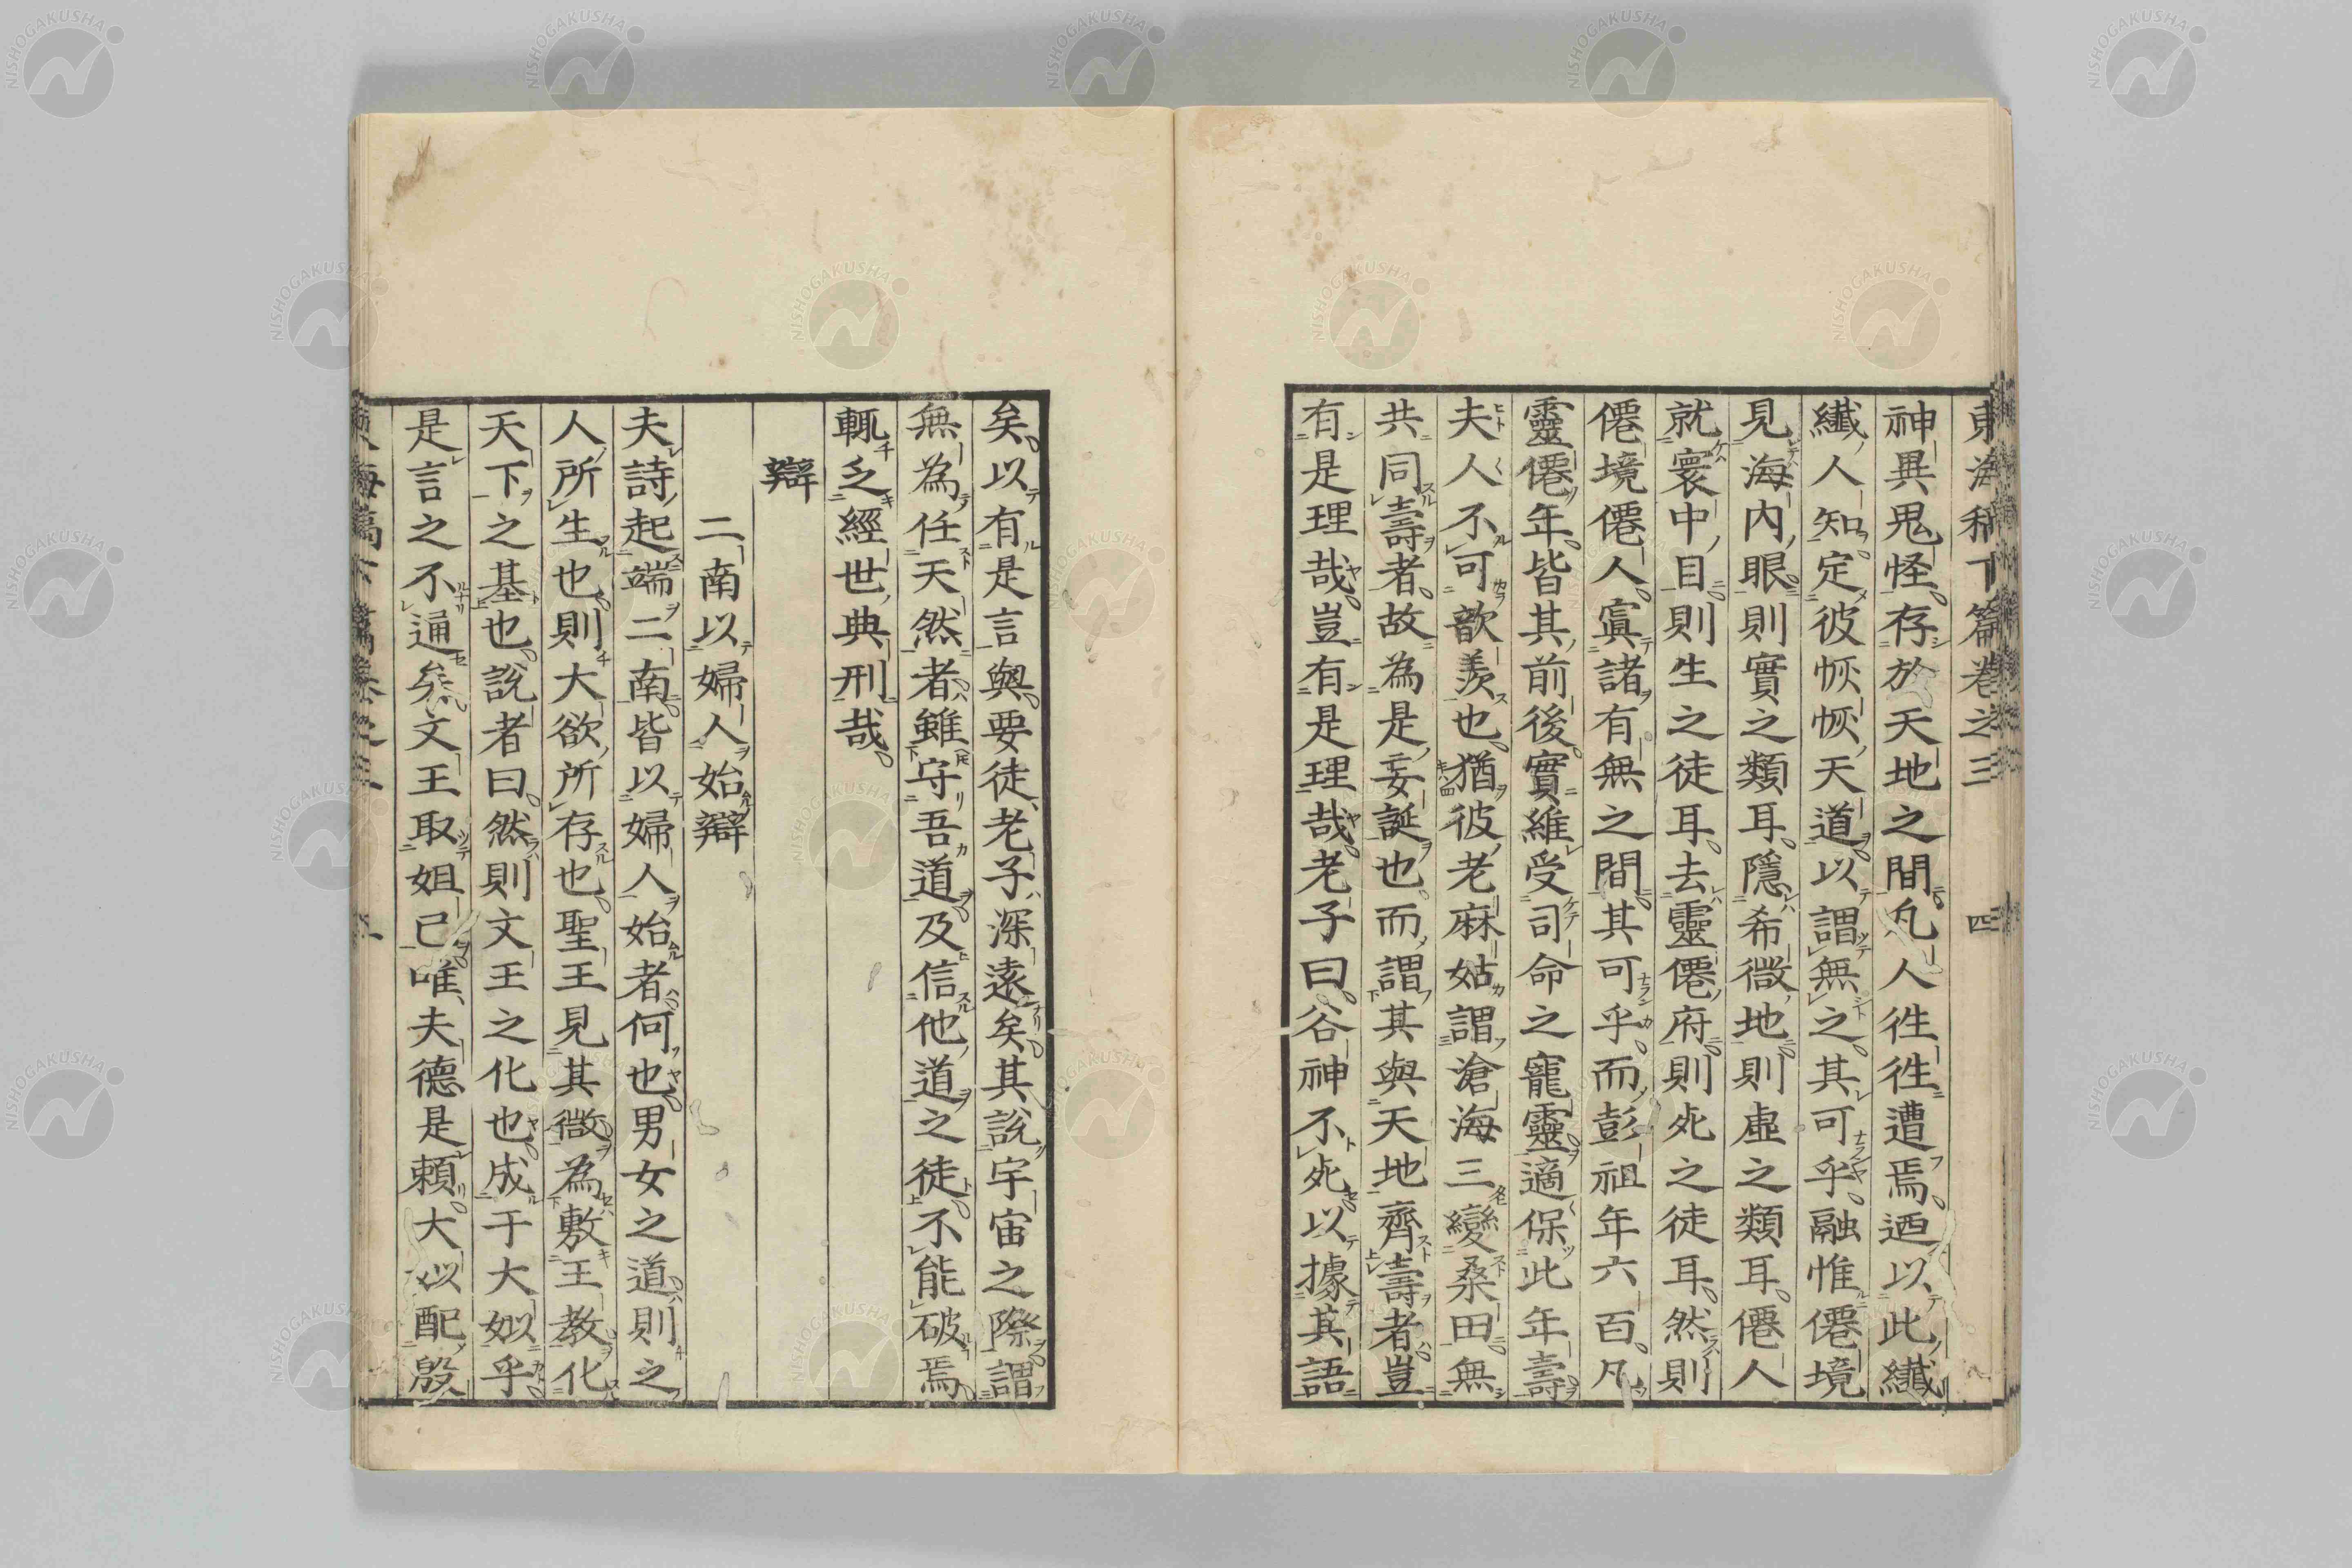 東海稿下篇卷之三 四
神異鬼怪存於天地之間凡人徃徃遭焉迺以此纎
纎人知定彼恢恢天道以謂無之其可乎融惟僊境
見海内眼則實之類耳隱希微地則虛之類耳僊人
就寰中目則生之徒耳去靈僊府則死之徒耳然則
僊境僊人寘諸有無之間其可乎而彭祖年六百凡
靈僊年皆其前後實維受司命之寵靈適保此年壽
夫人不可歆羨也猶彼老麻姑謂滄海三變桑田無
共同壽者故為是妄誕也而謂其與天地齊壽者豈
有是理哉豈有是理哉老子曰谷神不死以據其語
矣以有是言與要徒老子深遠矣其說宇宙之際謂
無為任天然者雖守吾道及信他道之徒不能破焉
輒乏經世典刑哉
辯
二南以婦人始辯
夫詩起端二南皆以婦人始者何也男女之道則之
人所生也則大欲所存也聖王見其微為敷王教化
天下之基也說者曰然則文王之化也成于大姒乎
是言之不通矣文王取妲己唯夫德是頼大姒配殷